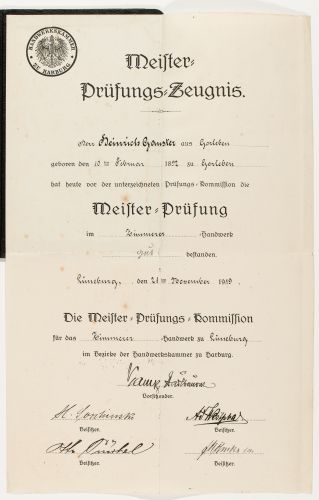 HANDWERKSKAMMER
ZU HARBURG
Meister-
Prüfungs-Zeugnis.
Herr Heinrich Gauster aus Gorleben
geboren den 10ten Februar 1892 zu Gorleben
hat heute vor der unterzeichneten Prüfungs-Kommission die
Meister-Prüfung
im Zimmerer-Handwerk
gut bestanden.
Lüneburg, den 21ten November 1919.
Die Meister-Prüfungs-Kommission
für das Zimmerer-Handwerk zu Lüneburg
im Bezirke der Handwerkskammer zu Harburg.
Vorsitzender.
Beisitzer. Beisitzer.
Beisitzer. Beisitzer.